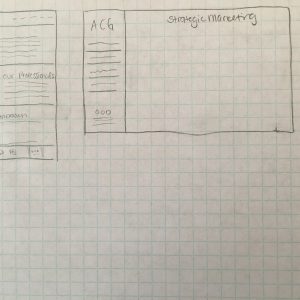 our Professionals
ACG
Strategic Marketing